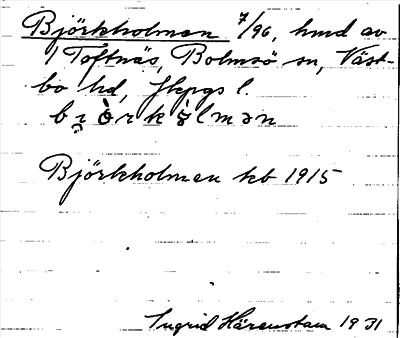 Björkholmen 7/96, hmd av
1 Toftnäs, Bolmsö sn, Väst-
bo hd, Jkpgs l.
bi̯ò̈rkə̀lmən
Björkholmen kb 1915
Ingrid Härenstam 1931